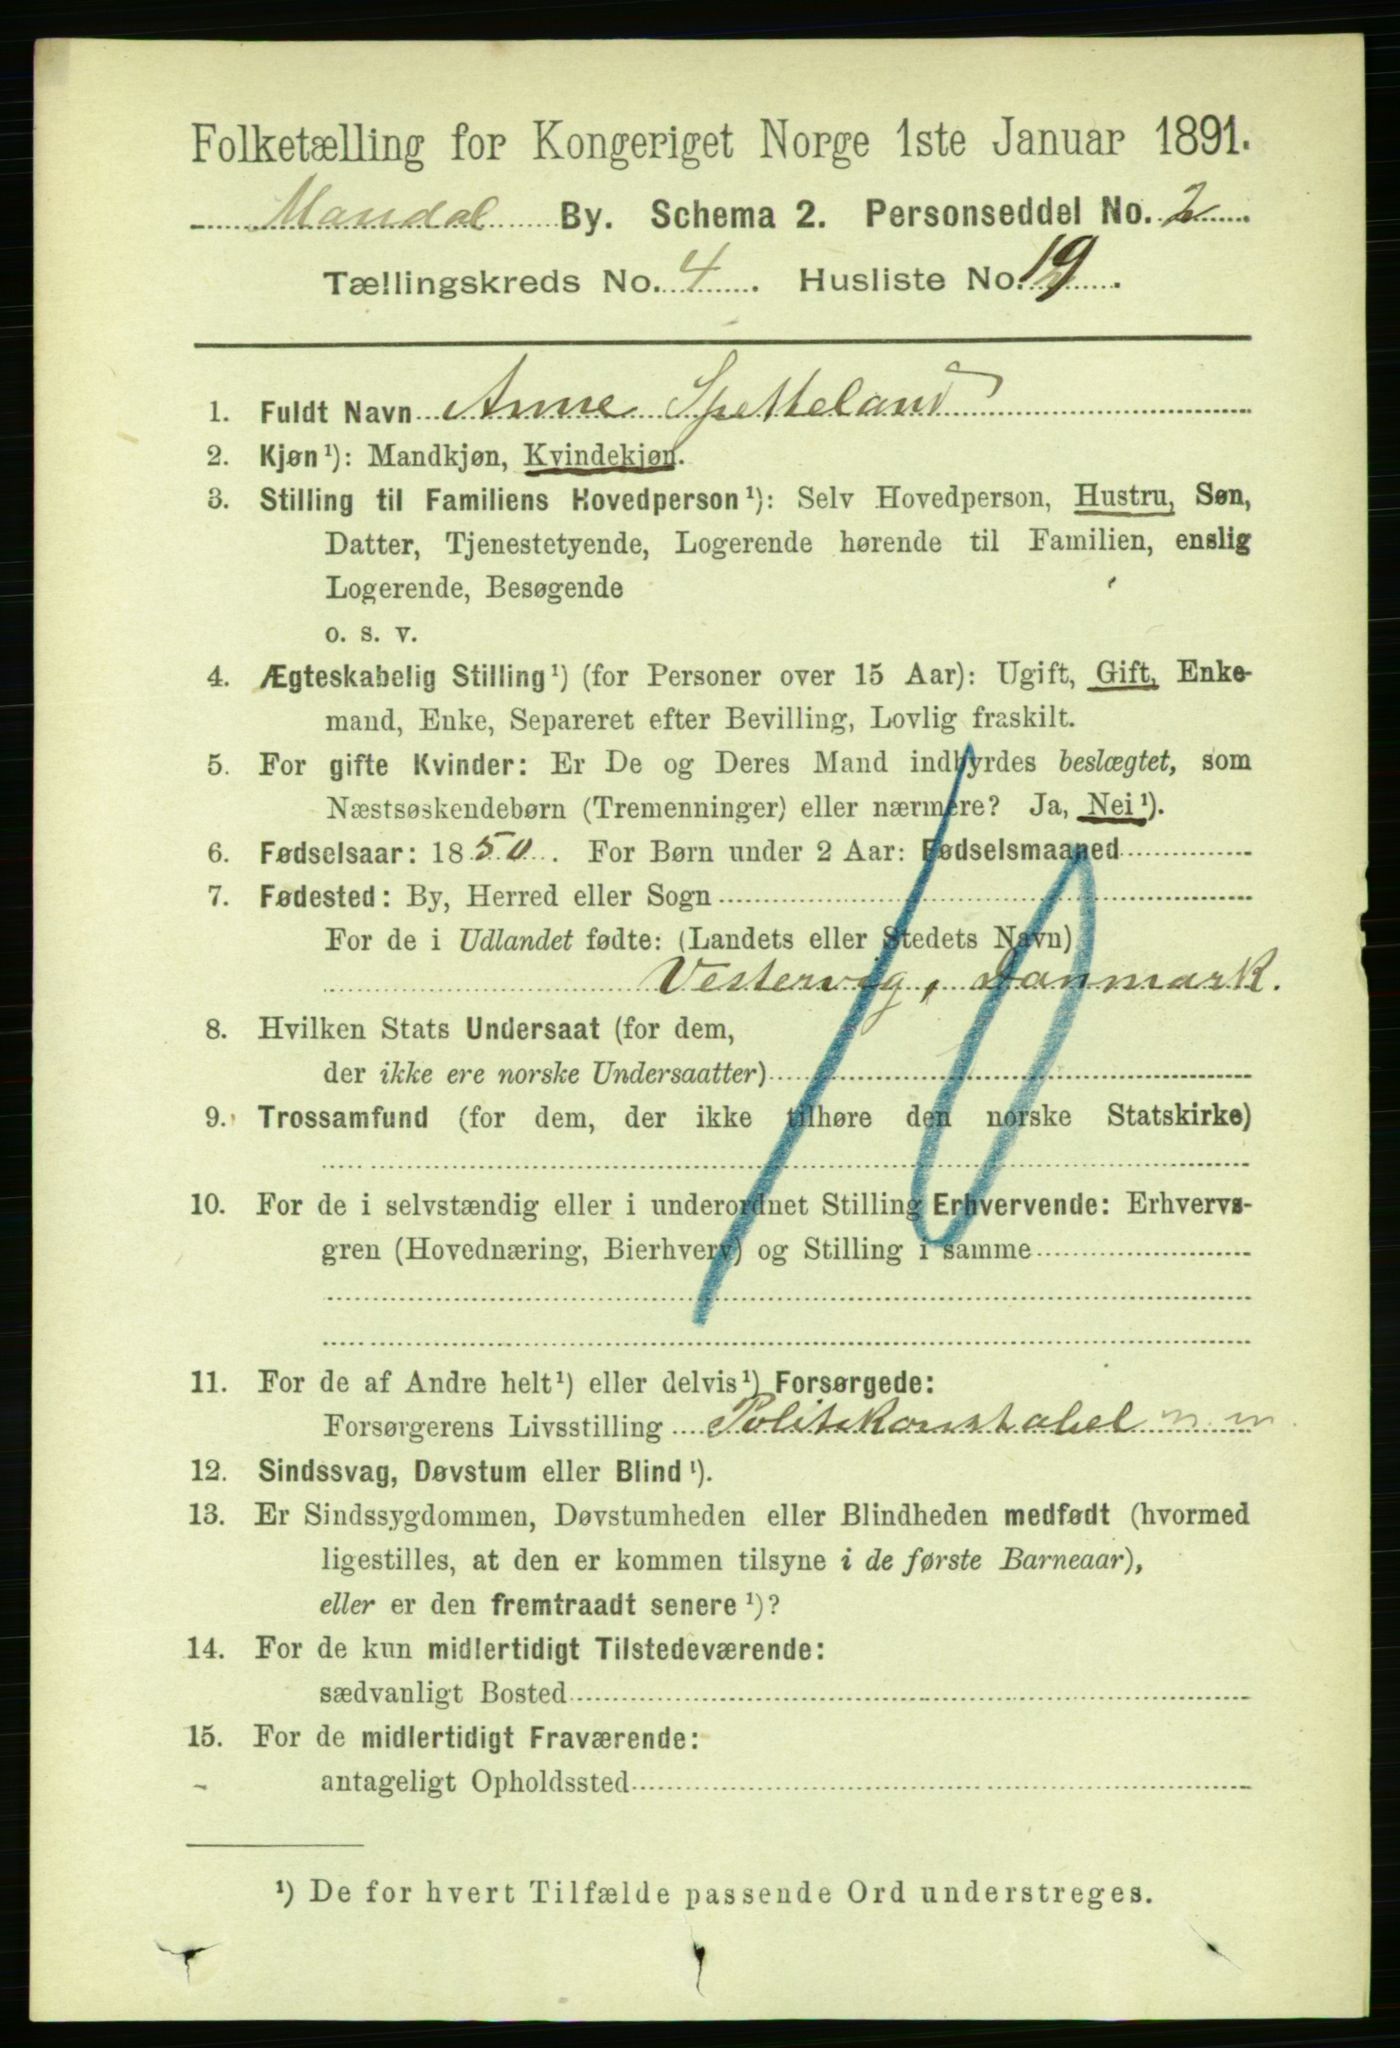 Folketælling for Kongeriget Norge 1ste Januar 1891.
Mandal By. Schema 2. Personseddel No. 2
Tællingskreds No. 4. Husliste No. 19.
1. Fuldt Navn Anne Spetteland
2. Kjøn¹): Mandkjøn, Kvindekjøn.
3. Stilling til Familiens Hovedperson¹): Selv Hovedperson, Hustru, Søn,
Datter, Tjenestetyende, Logerende hørende til Familien, enslig
Logerende, Besøgende
o. s. v.
4. Ægteskabelig Stilling¹) (for Personer over 15 Aar): Ugift, Gift, Enke-
mand, Enke, Separeret efter Bevilling, Lovlig fraskilt.
5. For gifte Kvinder: Er De og Deres Mand indbyrdes beslægtet, som
Næstsøskendebørn (Tremenninger) eller nærmere? Ja, Nei¹).
6. Fødselsaar: 1850. For Børn under 2 Aar: Fødselsmaaned
7. Fødested: By, Herred eller Sogn
For de i Udlandet fødte: (Landets eller Stedets Navn)
Vestervig, Danmark.
8. Hvilken Stats Undersaat (for dem,
der ikke ere norske Undersaatter)
9. Trossamfund (for dem, der ikke tilhøre den norske Statskirke)
10. For de i selvstændig eller i underordnet Stilling Erhvervende: Erhvervs-
gren (Hovednæring, Bierhverv) og Stilling i samme
10
11. For de af Andre helt¹) eller delvis¹) Forsørgede:
Forsørgerens Livsstilling Politikonstabel m. m.
12. Sindssvag, Døvstum eller Blind¹).
13. Er Sindssygdommen, Døvstumheden eller Blindheden medfødt (hvormed
ligestilles, at den er kommen tilsyne i de første Barneaar),
eller er den fremtraadt senere¹)?
14. For de kun midlertidigt Tilstedeværende:
sædvanligt Bosted
15. For de midlertidigt Fraværende:
antageligt Opholdssted
¹) De for hvert Tilfælde passende Ord understreges.